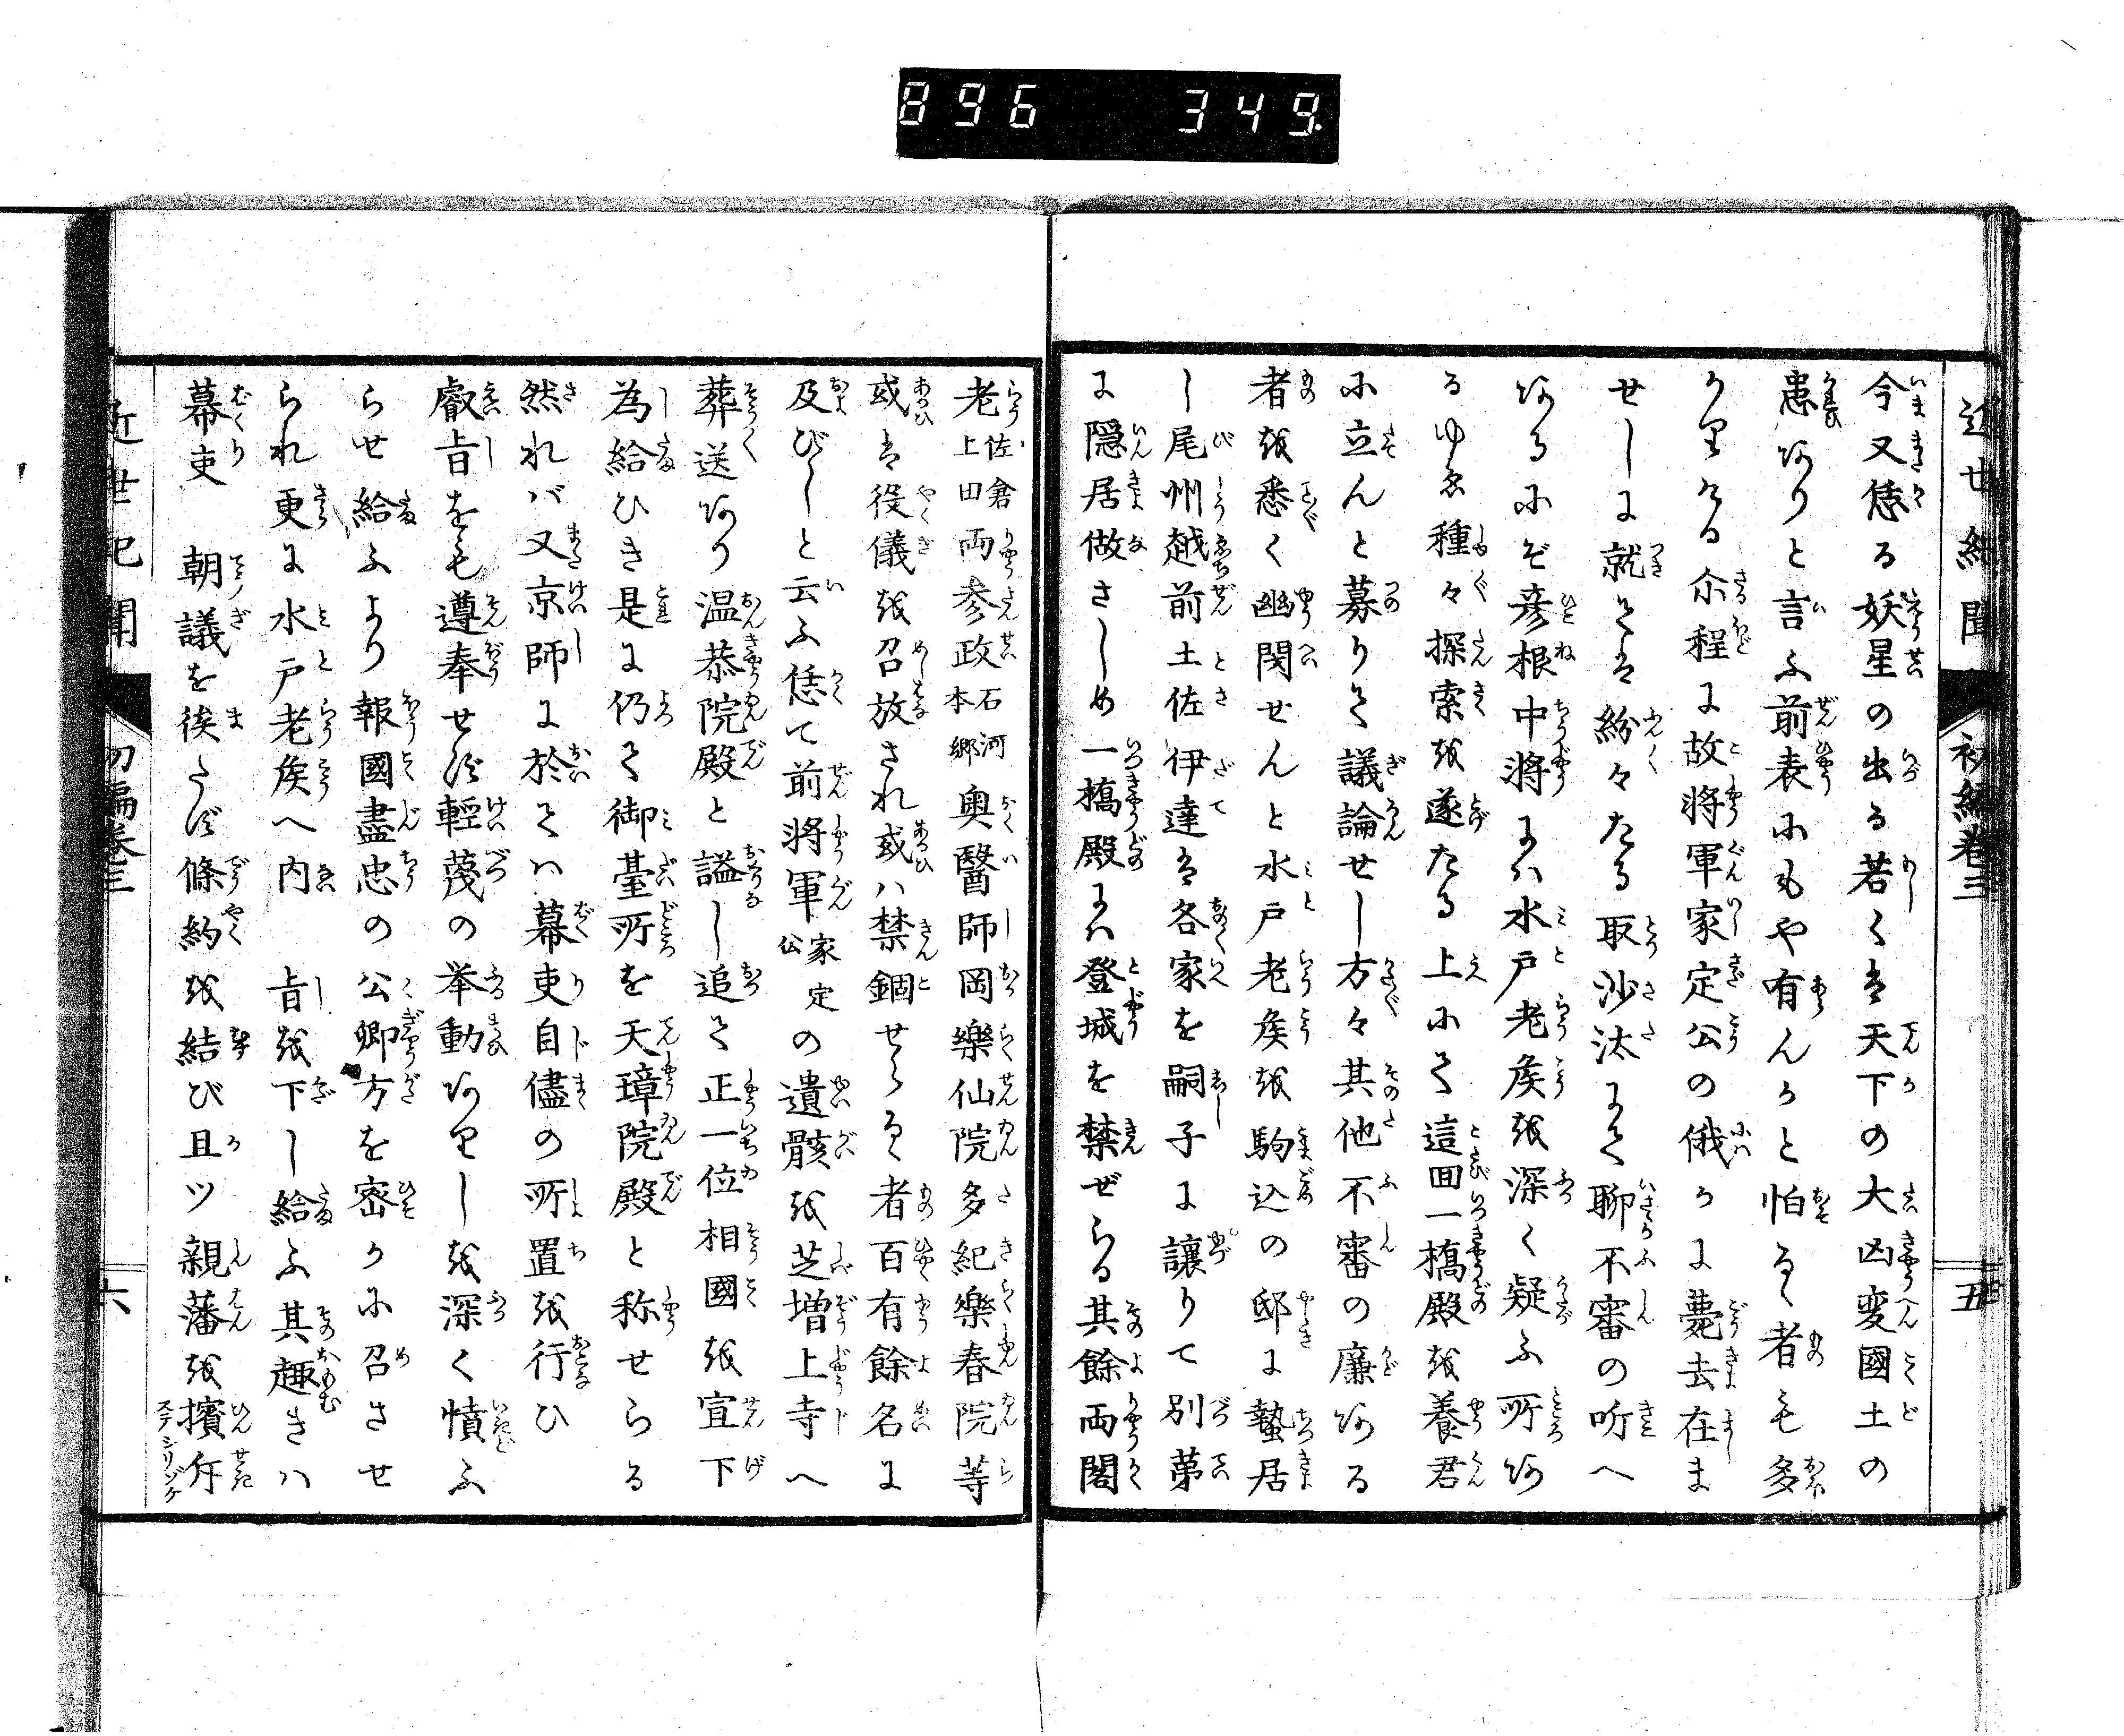 896 349.
近世紀聞 初編巻三 五
今又恁る妖星の出る若くは天下の大凶変國土の
患ありと言ふ前表にもや有んかと怕るゝ者も多
かりける尒程に故将軍家定公の俄かに薨去在ま
せしに就ては紛々たる取沙汰にて聊不審の听へ
あるにぞ彦根中将には水戸老矦を深く疑ふ所あ
るゆゑ種々探索を遂たる上にて這回一橋殿を養君
に立んと募りて議論せし方々其他不審の廉ある
者を悉く幽閉せんと水戸老矦を駒込の邸に蟄居
し尾州越前土佐伊達は各家を嗣子に譲りて別荘
に隠居做さしめ一橋殿には登城を禁ぜらる其餘両閣
老佐倉上田両参政本郷石河奥醫師岡樂仙院多紀樂春院等
或は役儀を召放され或は禁錮せらるゝ者百有餘名に
及びしと云ふ恁て前将軍家定公の遺骸を芝増上寺へ
葬送あり温恭院殿と謚し追て正一位相國を宣下
為給ひき是に仍て御臺所を天璋院殿と称せらる
然れば又京師に於ては幕吏自儘の所置を行ひ
叡旨をも遵奉せず輕蔑の挙動ありしを深く憤ふ
らせ給ふより報國盡忠の公卿方を密かに召させ
られ更に水戸老矦へ内 旨を下し給ふ其趣きは
幕吏 朝議を俟たず條約を結び且ツ親藩を擯斥
ステシリゾケ
近世紀聞 初編巻三 六